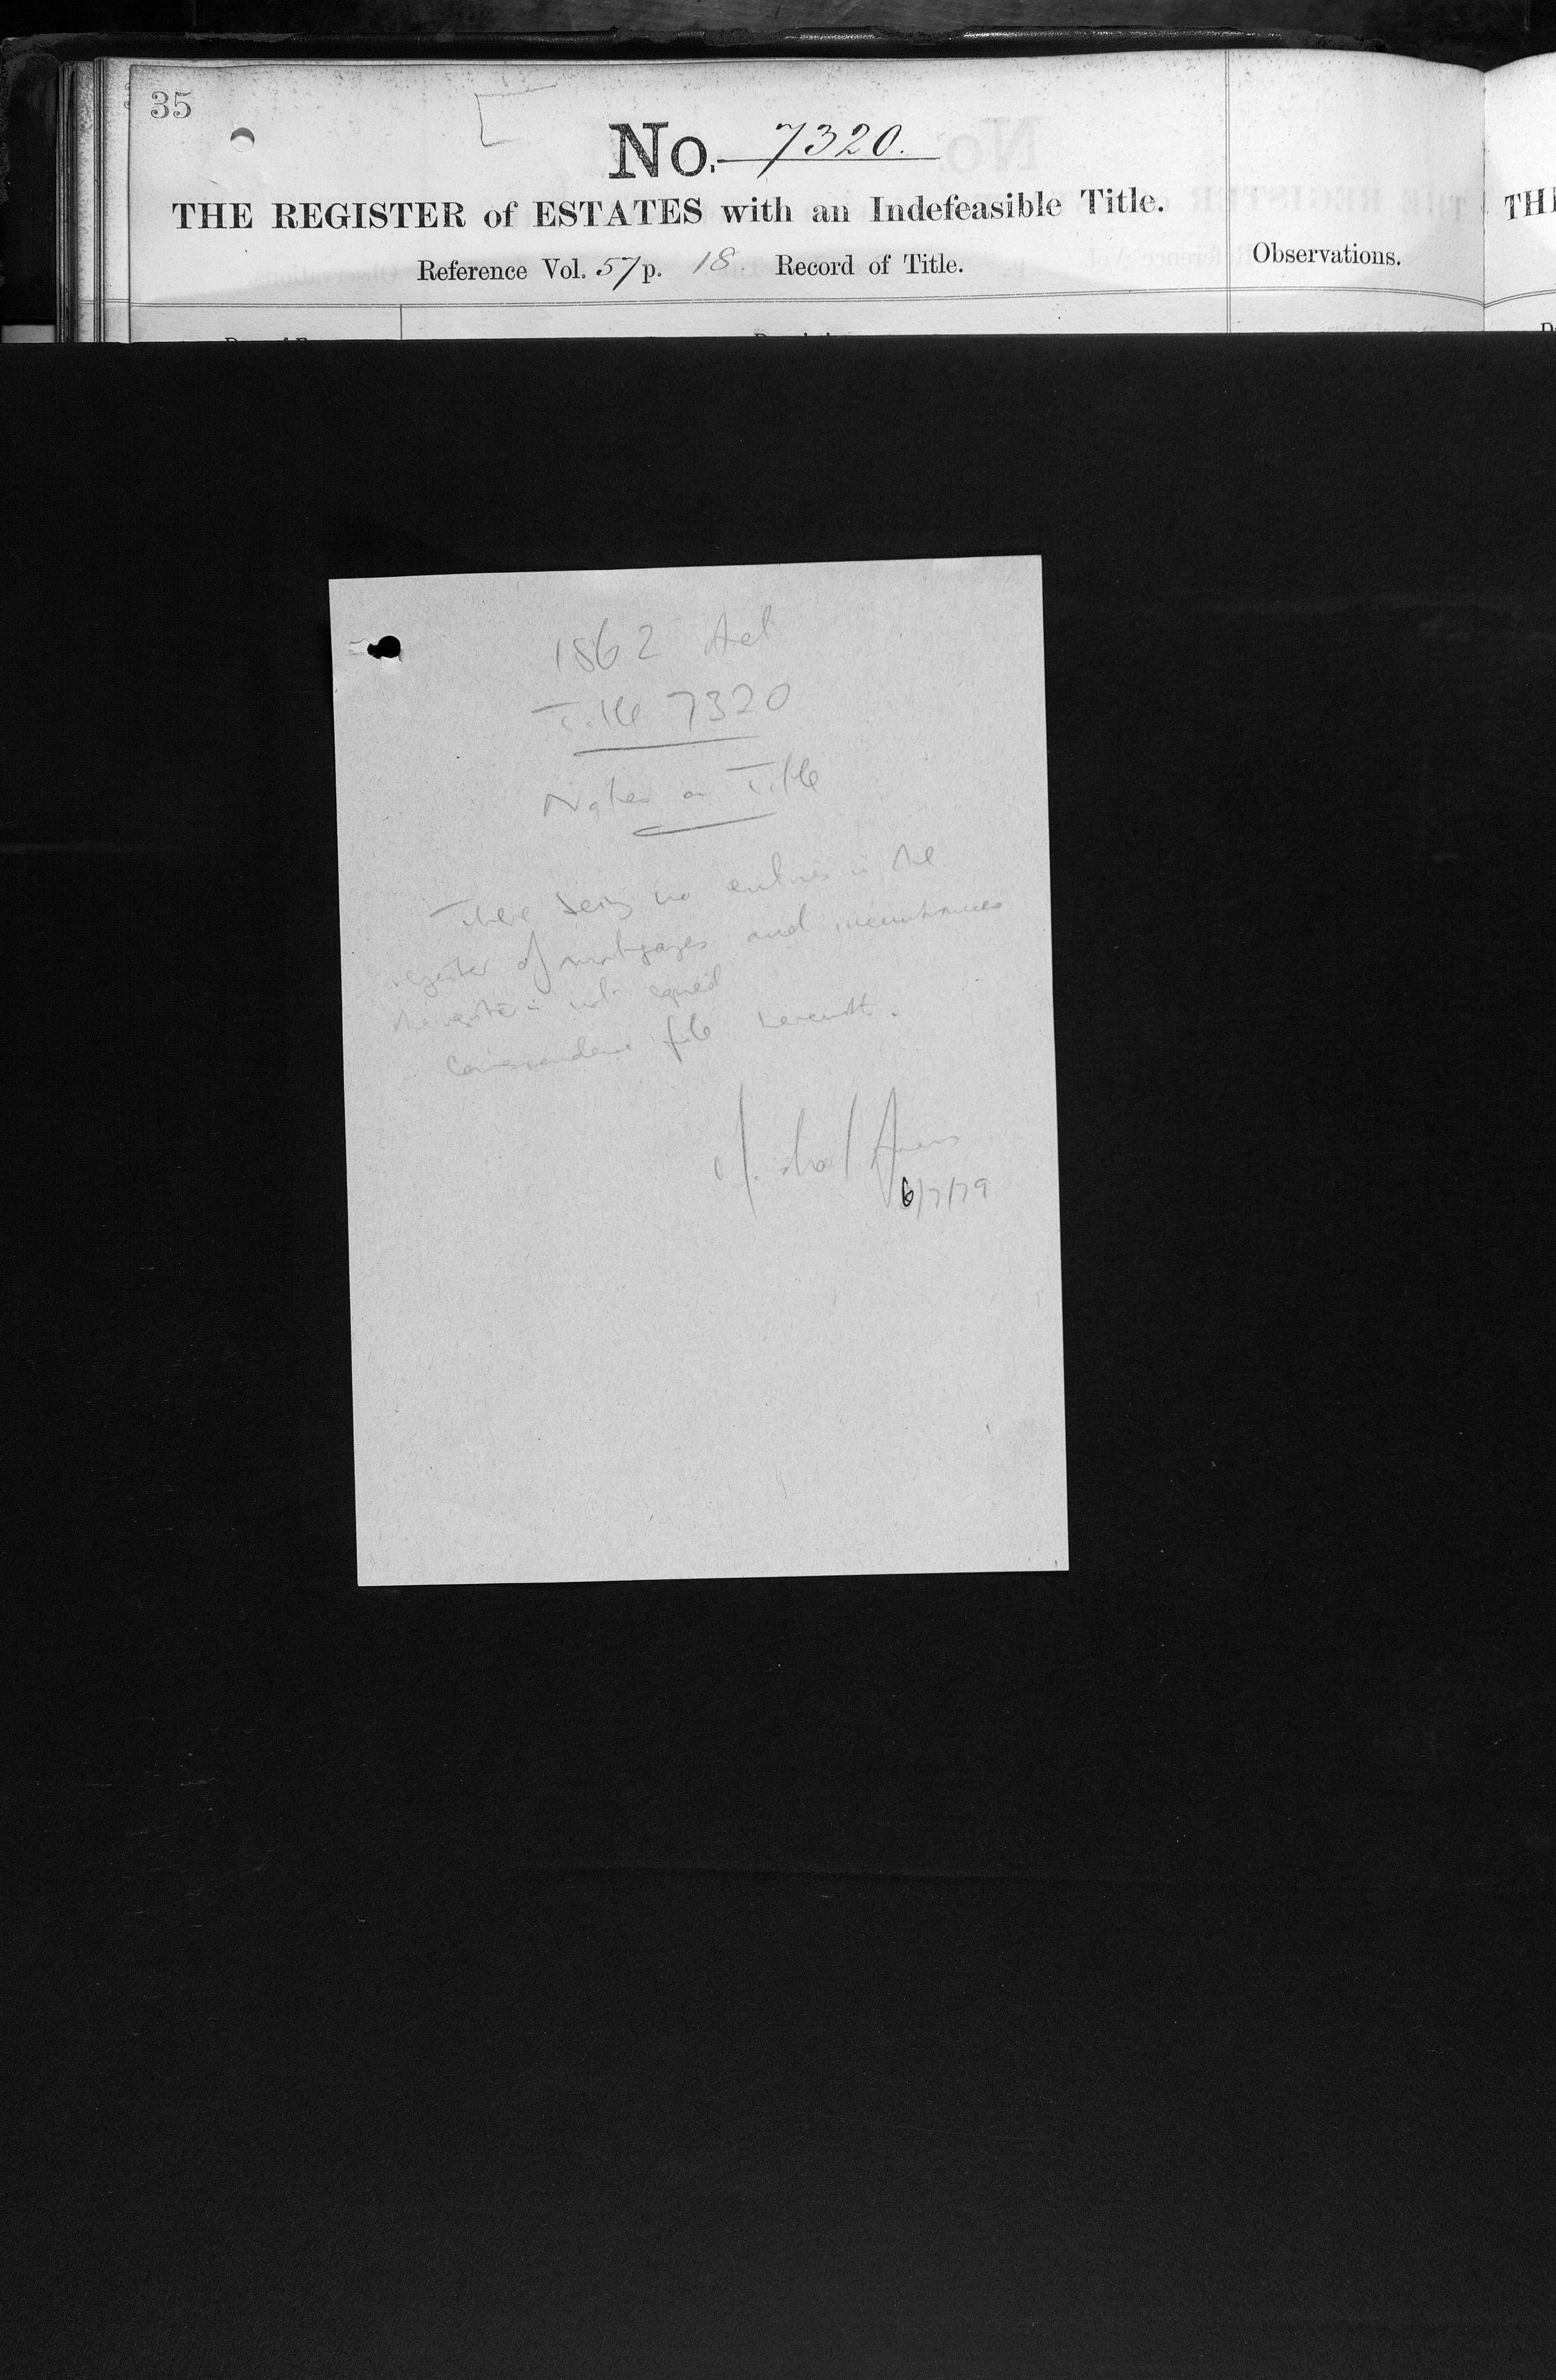 35
No. 7320.
THE REGISTER of ESTATES with an Indefeasible Title.
Reference Vol. 57 p. 18 Record of Title.
Observations.
TH
1862 Act
Title 7320
Notes on Title
There being no entries in the
register of mortgages and incumbrances
the register is not copied
Correspondence file herewith.
Michael
6/7/79